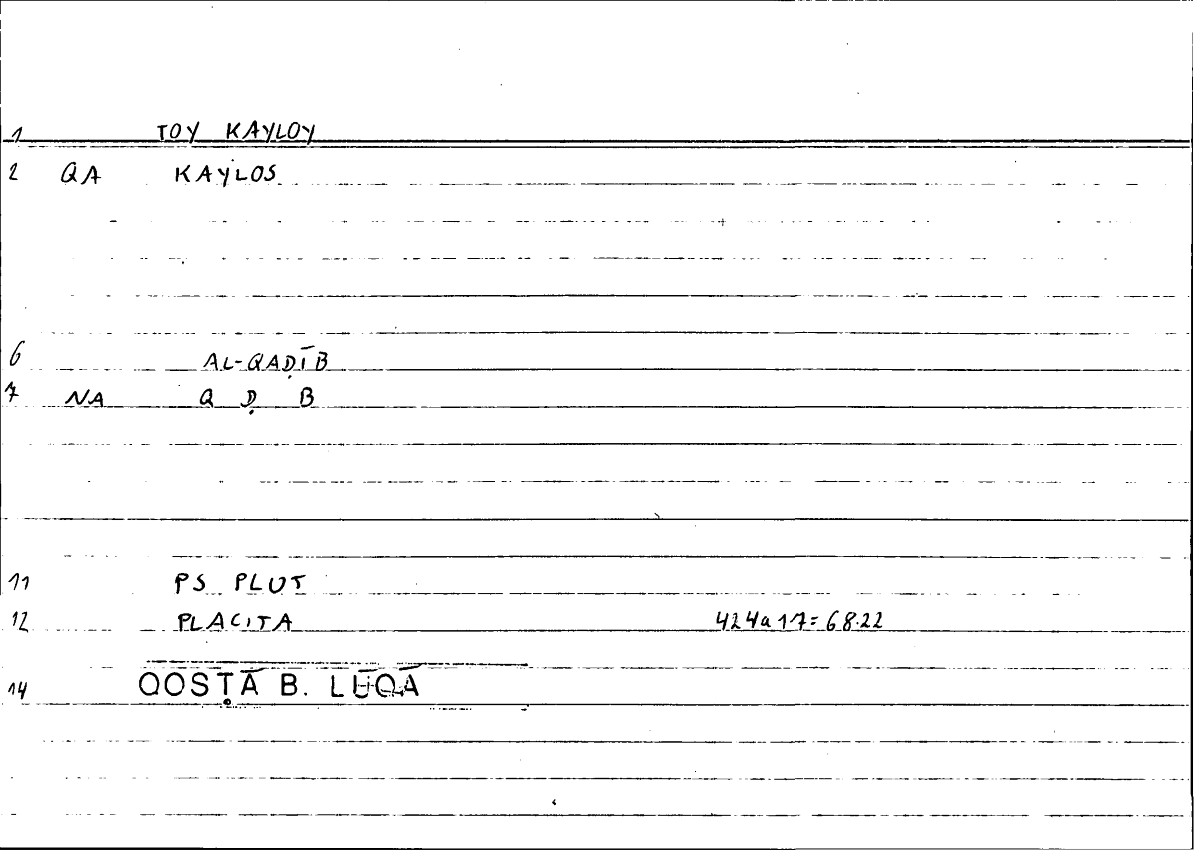 1 TOY KAYLOY
2 QA KAYLOS
6 AL-QAḌĪB
7 NA Q Ḍ B
11 PS PLUT
12 PLACITA 424a17=68.22
14 QOSṬĀ B. LŪQĀ